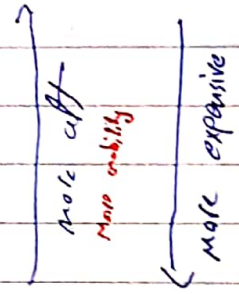 more eff
More mobility
More expensive